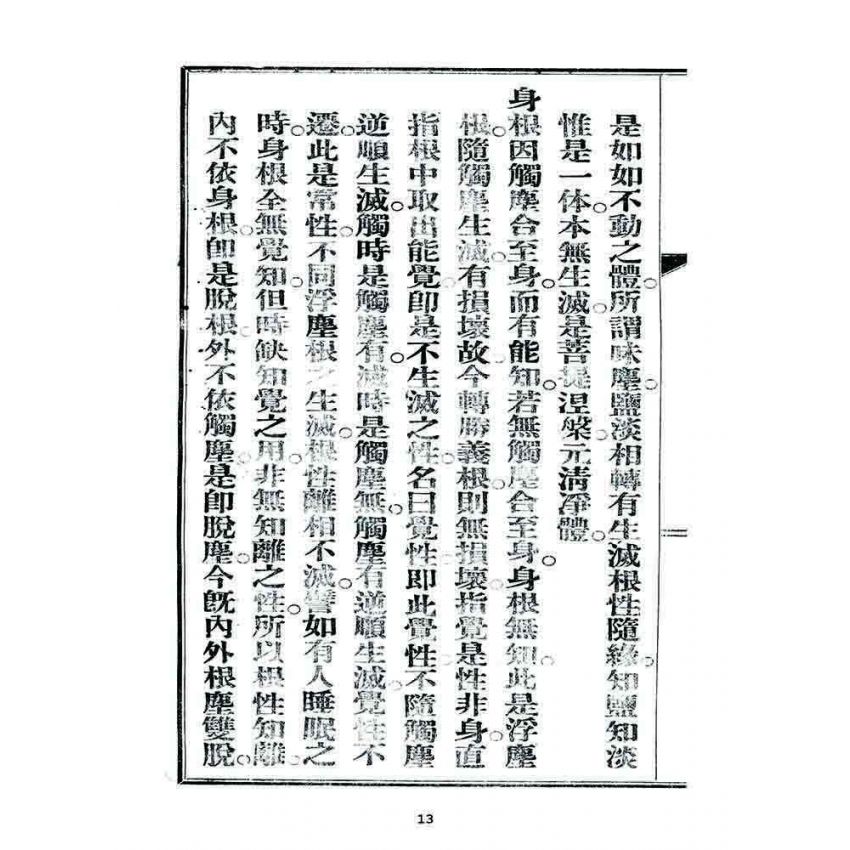 是如如不動之體。所謂味塵。鹽淡相轉有生滅。根性隨緣。知鹽知淡
惟是一体。本無生滅。是菩提涅槃。元淸凈體。
身根因觸塵合至身。而有能知。若無觸塵合至身。身根無知。此是浮塵
根。隨觸塵生滅。有損壞故。今轉勝義根。則無損壞。指覺是性非身。直
指根中取出能覺。卽是不生滅之性。名曰覺性。即此覺性。不隨觸塵
逆順生滅。觸時是觸塵有。滅時是觸塵無。觸塵有逆順生滅。覺性不
遷。此是常性。不同浮塵根之生滅。根性離相不滅。譬如有人睡眠之
時。身根全無覺知。但時缺知覺之用。非無知離之性。所以根性知離。
內不依身根。卽是脫根。外不依觸塵。是卽脫塵。今旣內外根塵雙脫。
13